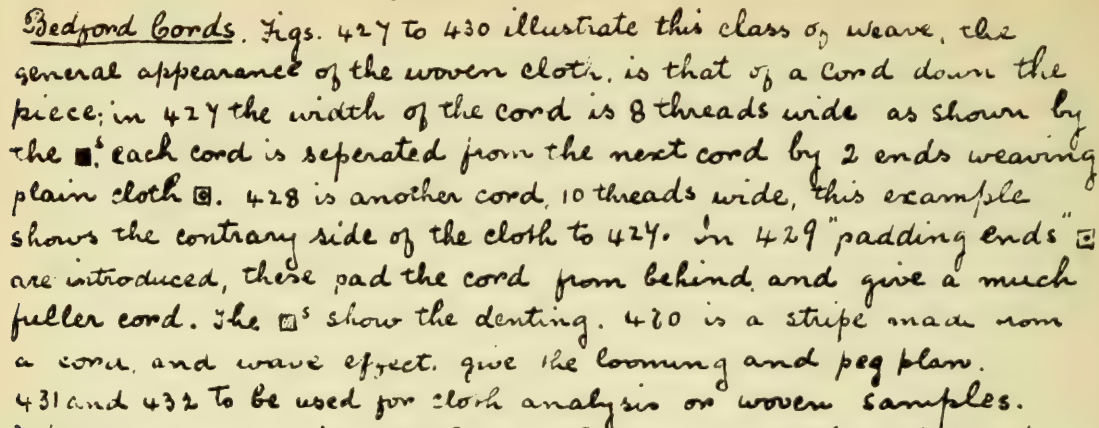 Bedford Cords. Figs. 427 to 430 illustrate this class of weave, the
general appearance of the woven cloth, is that of a cord down the
piece; in 427 the width of the cord is 8 threads wide as shown by
the ■s. each cord is seperated from the next cord by 2 ends weaving
plain cloth ▣. 428 is another cord, 10 threads wide, this example
shows the contrary side of the cloth to 427. In 429 "padding ends" ⊡
are introduced, these pad the cord from behind, and give a much
fuller cord. The ▨s show the denting. 430 is a stripe made from
a cord, and wave effect. give the looming and peg plan.
431 and 432 to be used for cloth analysis or woven samples.